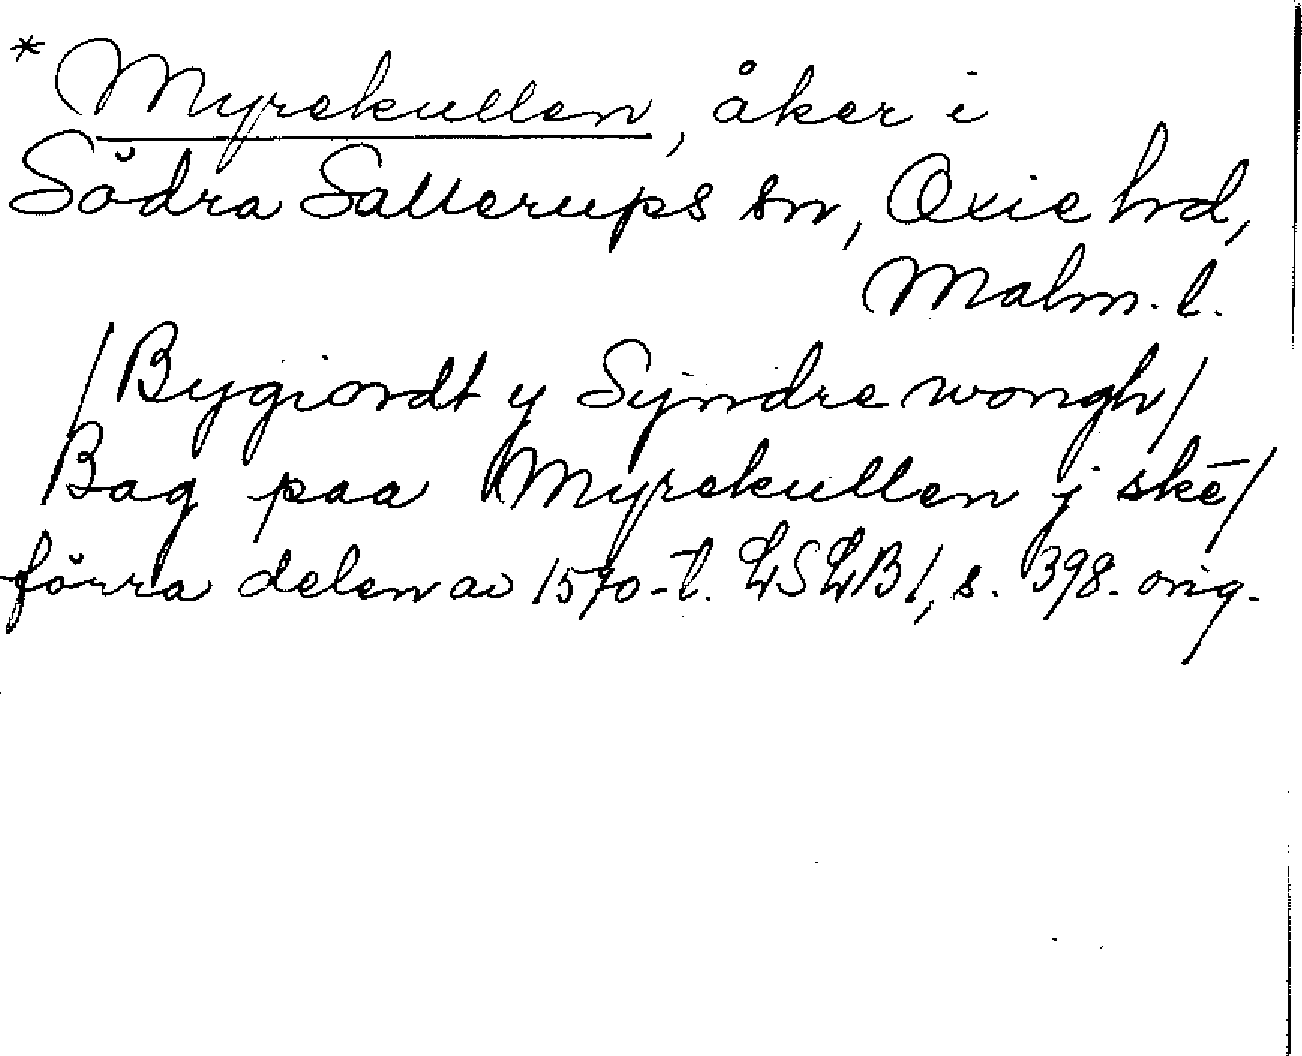 * Myrekullen, åker i
Södra Sallerups sn, Oxie hrd,
Malm. l.
/Bygiordt y Syndre wongh/
Bag paa Myrekullen j skē/
förra delen av 1570-t. LSLB1, s. 398. orig.